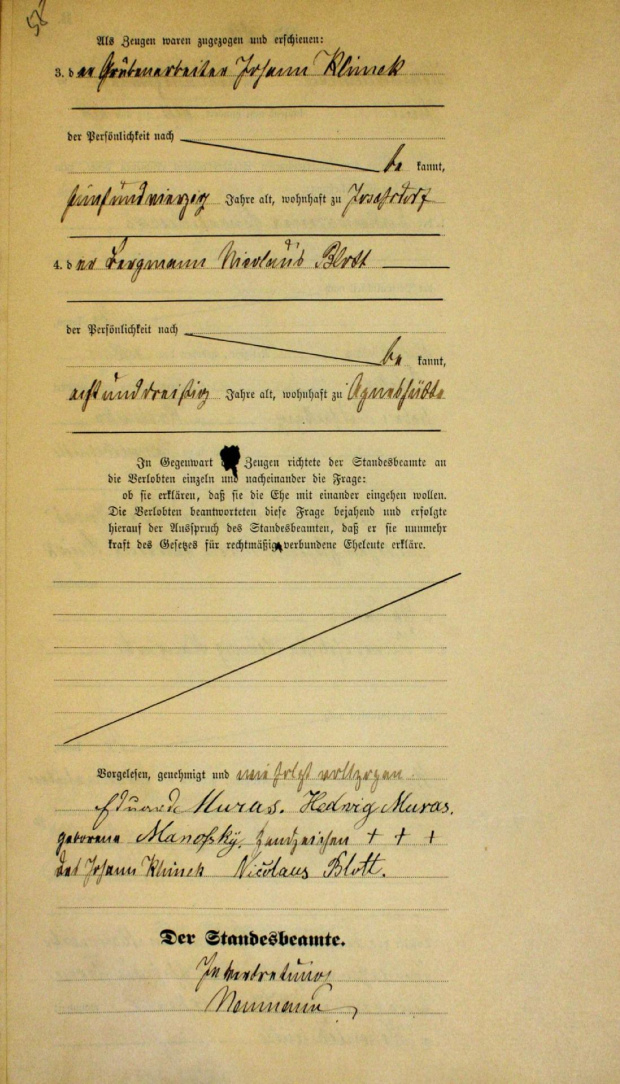 58
Als Zeugen waren zugezogen und erschienen:
3. der Grubenarbeiter Johann Klimek
der Persönlichkeit nach
be kannt,
fünfundvierzig Jahre alt, wohnhaft zu Josefsdorf
4. der Bergmann Nicolaus Blott
der Persönlichkeit nach
be kannt,
achtunddreißig Jahre alt, wohnhaft zu Agneshütte
In Gegenwart Zeugen richtete der Standesbeamte an
die Verlobten einzeln und nacheinander die Frage:
ob sie erklären, daß sie die Ehe mit einander eingehen wollen.
Die Verlobten beantworteten diese Frage bejahend und erfolgte
hierauf der Ausspruch des Standesbeamten, daß er sie nunmehr
kraft des Gesetzes für rechtmäßig verbundene Eheleute erkläre.
Vorgelesen, genehmigt und wie folgt vollzogen
Eduard Muras. Hedwig Muras.
geborene Manofsky. Handzeichen + + +
des Johann Klimek Nicolaus Blott.
Der Standesbeamte.
In Vertretung
Neumann